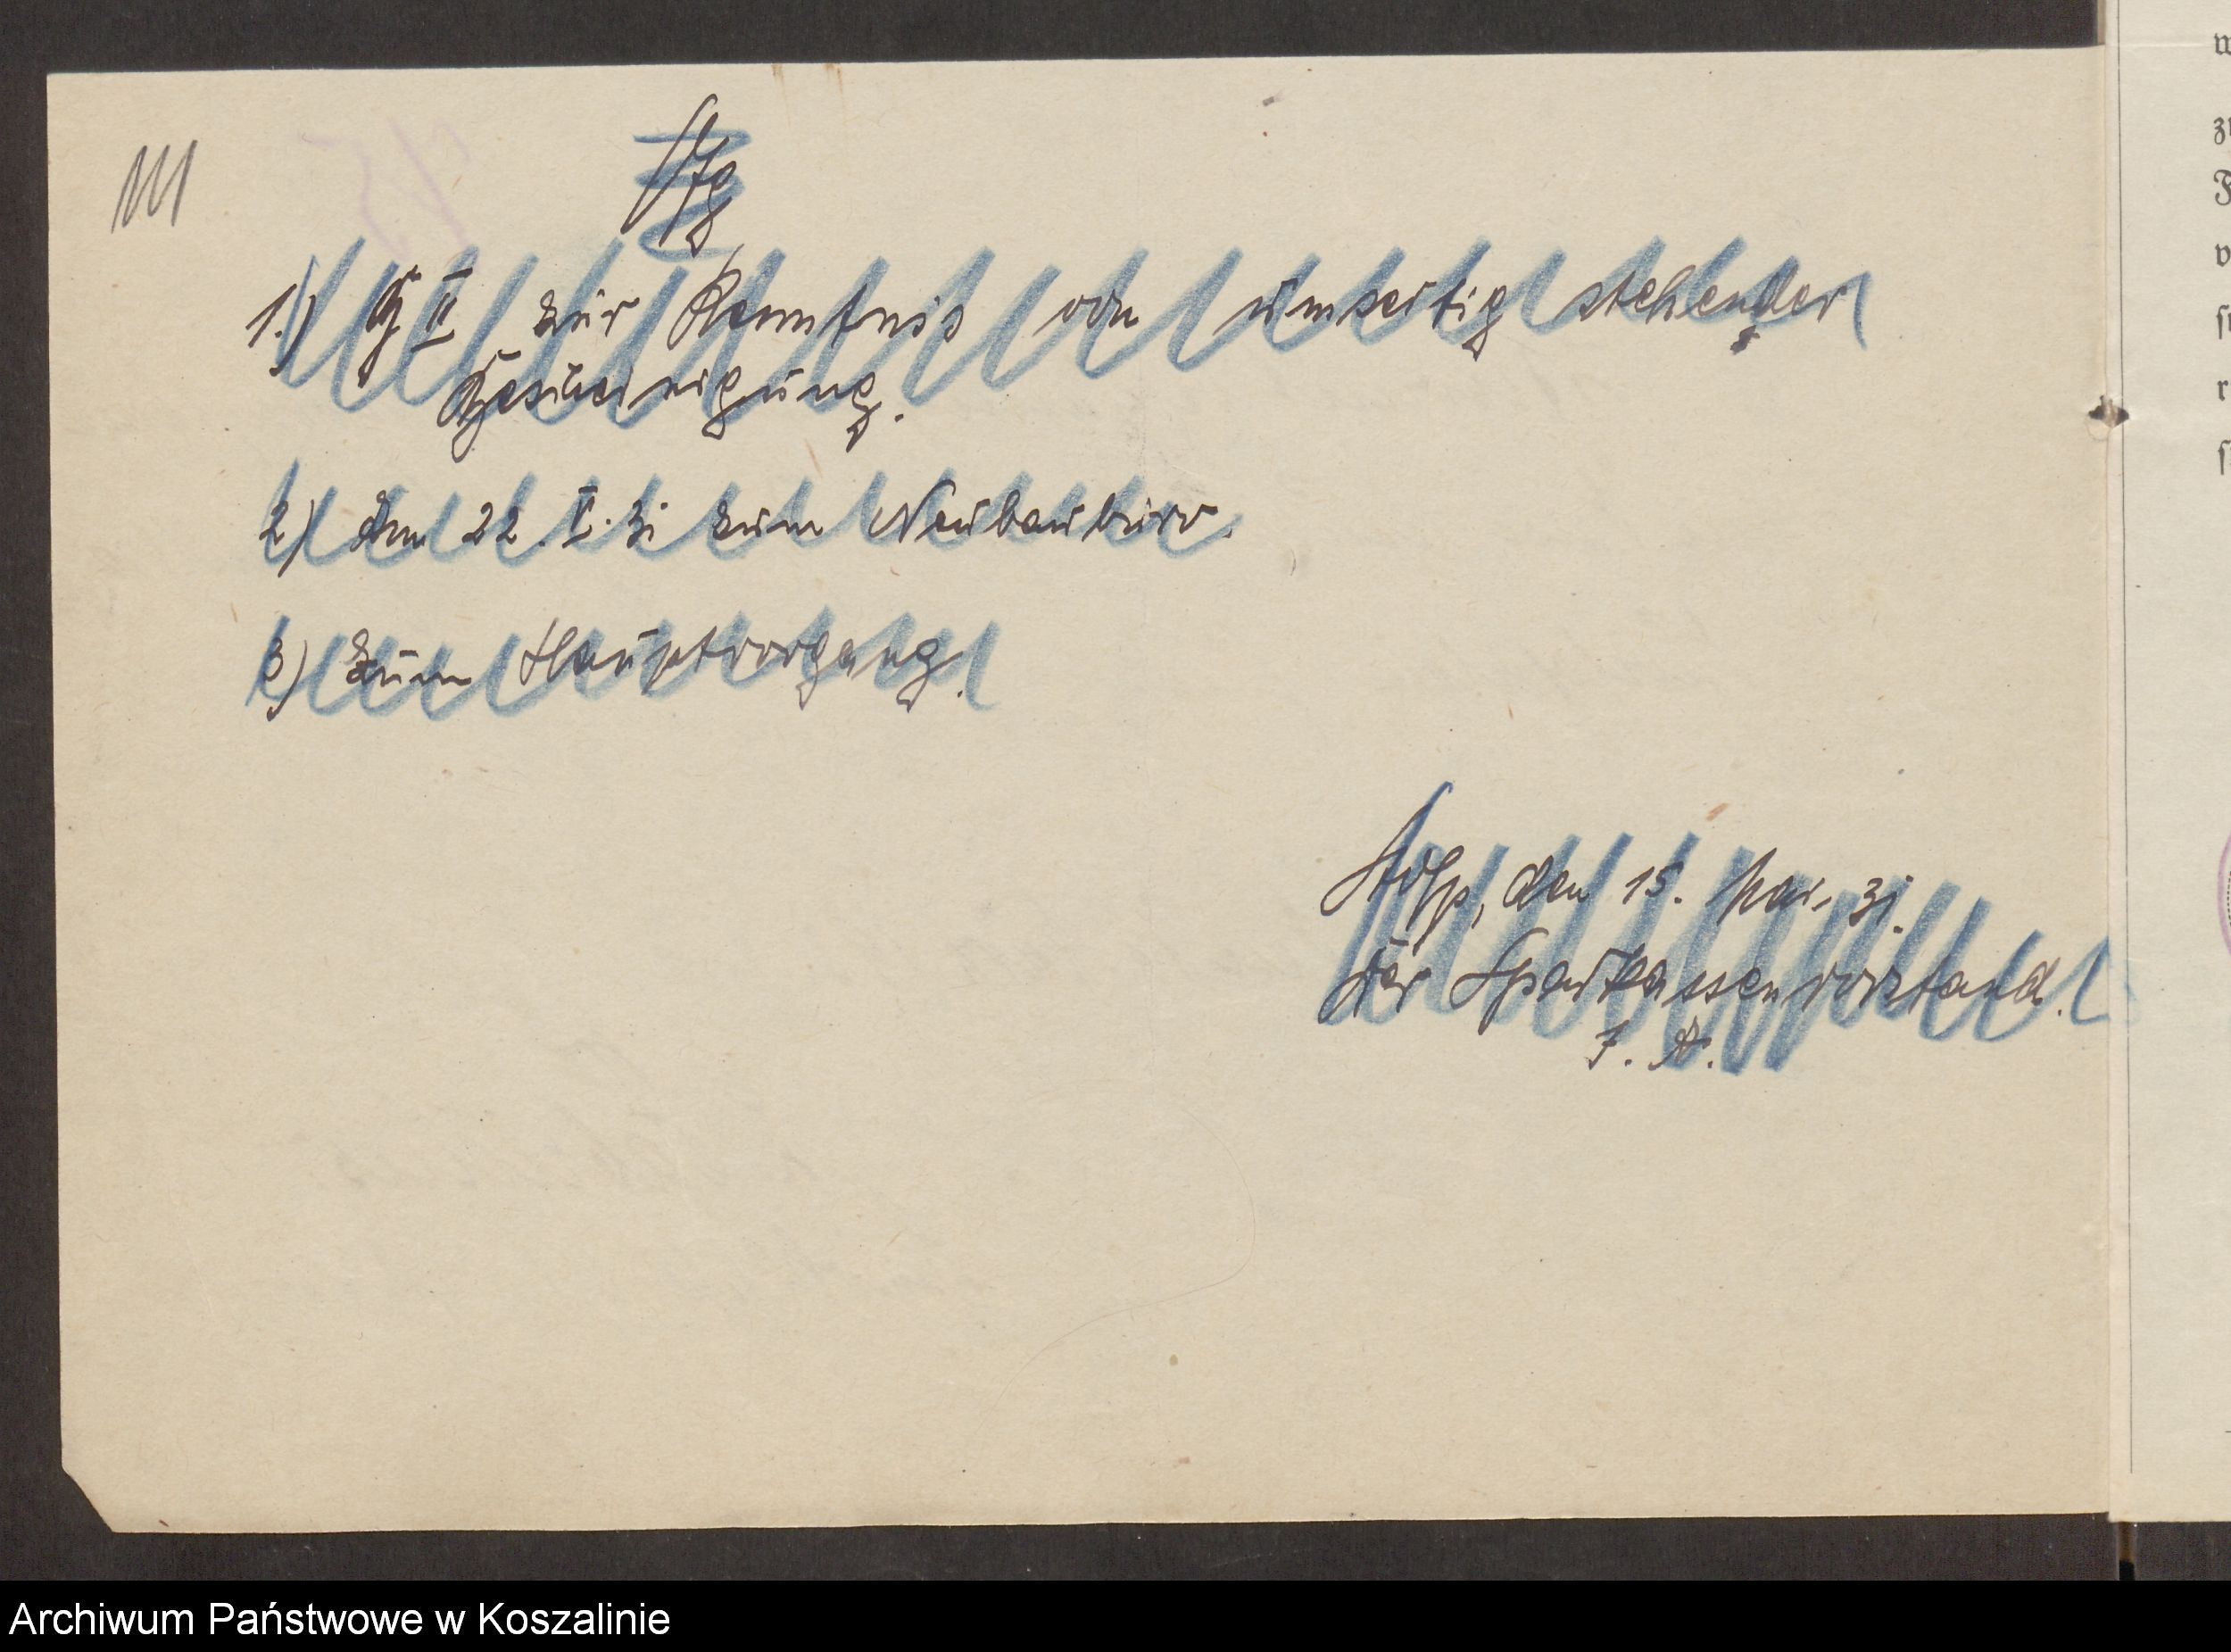 Vfg
1.) G II zur Kenntnis von umseitig stehender
Bescheinigung.
2) Am 22. V. 31 zum Neubaubüro.
3) Zum Hauptvorgang.
Stolp, den 15. Mai 31.
Der Sparkassenvorstand.
I. A.
Archiwum Państwowe w Koszalinie